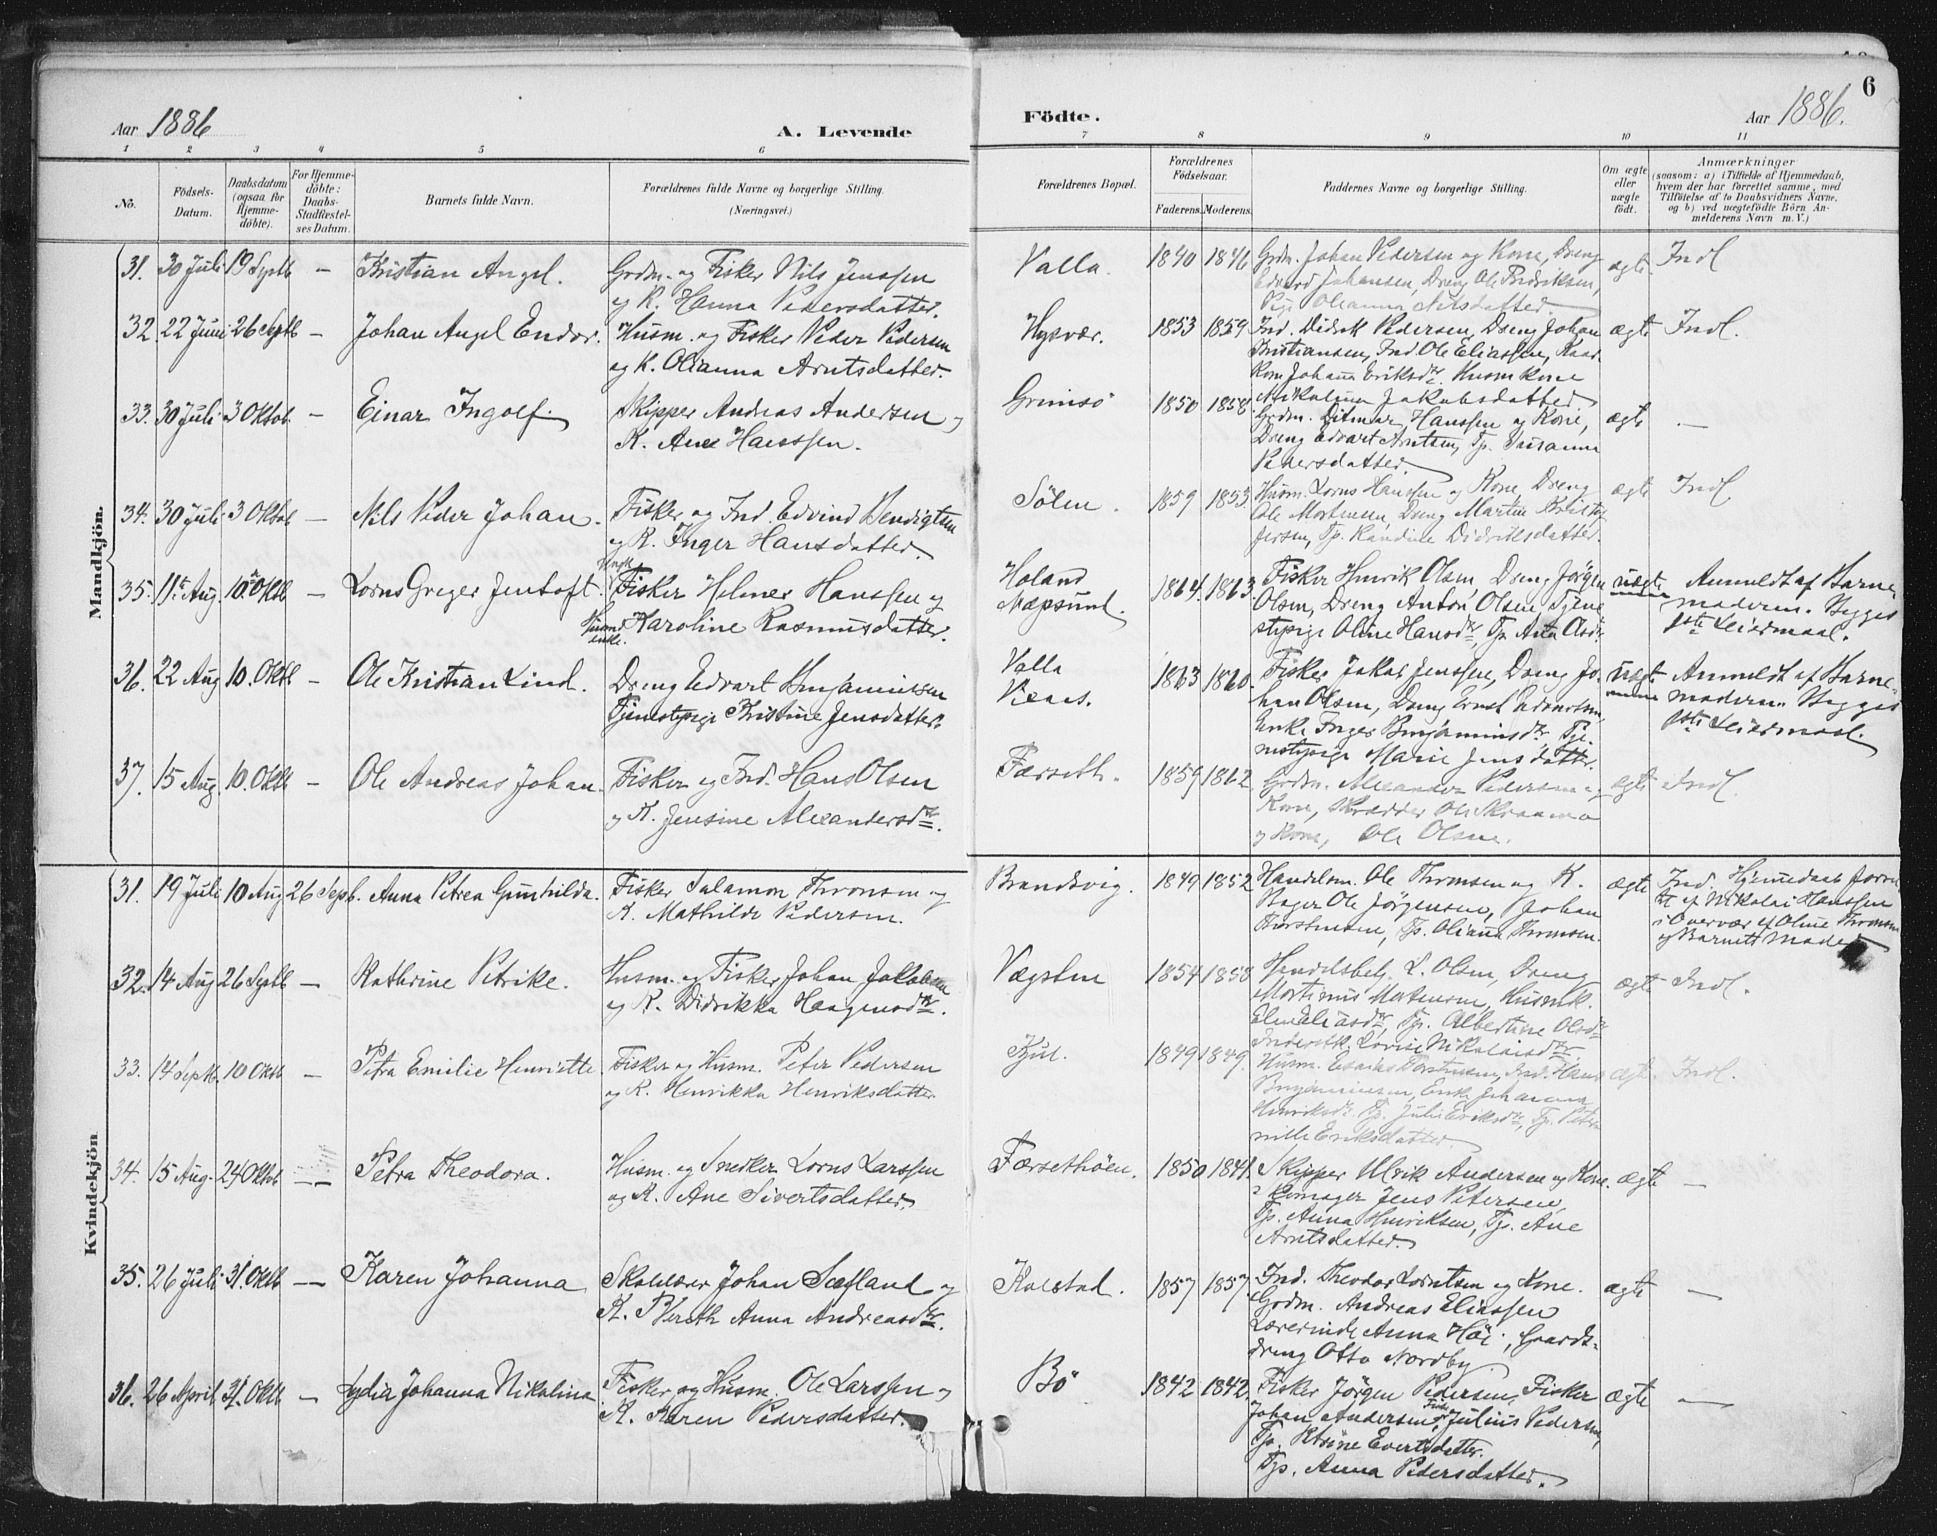 6
Aar 1886
A. Levende
Födte.
Aar 1886.
1 2 3 4 5 6 7 8 9 10 11
No.
Födsels-
Datum.
Daabsdatum
(ogsaa for
Hjemme-
döbte).
For Hjemme-
döbte:
Daabs-
Stadfæstel-
ses Datum.
Barnets fulde Navn.
Forældrenes fulde Navne og borgerlige Stilling.
(Næringsvei.)
Forældrenes Bopæl.
Forældrenes
Födselsaar.
Faderens. Moderens.
Faddernes Navne og borgerlige Stilling.
Om ægte
eller
uægte
födt.
Anmærkninger
(saasom: a) i Tilfælde af Hjemmedaab,
hvem der har forrettet samme, med
Tilföielse af to Daabsvidners Navne,
og b) ved uægtefödte Börn An-
melderens Navn m. V.)
Mandkjön.
31. 30 Juli 19 Septb — Kristian Angel. Grdm. og Fisker Nils Jenssen
og K. Hanna Pedersdatter.
Valla. 1840 1846 Grdm. Johan Pedersen og Kone, Dreng
Edvard Johansen, Dreng Ole Fredriksen,
Pige Oleanna Nilsdatter.
ægte Indl
32. 22 Juni 26 Septb — Johan Angel Endor. Husm. og Fisker Peder Pedersen
og K. Olianna Arntsdatter.
Hysvær. 1853 1859 Ind. Didrik Pedersen, Dreng Johan
Kristiansen, Ind. Ole Eliassen, Kaar
Kone Johanna Eriksdtr. Husm kone
Nikolina Jakobsdatter
ægte Indl.
33. 30 Juli 3 Oktob. — Einar Ingolf. Skipper Andreas Andersen og
K. Ane Hanssen.
Grimsö 1850 1858 Grdm. Ditmar Hanssen og Kone,
Dreng Edvart Arntsen, Tp. Susanna
Pedersdatter.
ægte —
34. 30 Juli 3 Oktob — Nils Peder Johan. Fisker og Ind. Edvind Bendigtsen
og K. Inger Hansdatter.
Sölen. 1859 1853 Husm. Lorns Hanssen og Kone, Dreng
Ole Mortensen, Dreng Martin Kristof
fersen, Tp. Randine Didriksdatter.
ægte Indl
35. 11te Aug. 10 Oktb — Lorns Greger Jentoft. Ungk. Fisker Helmer Hanssen og
Husmd enke. Karoline Rasmusdatter.
Holand
Mæpsund. 1864. 1863. Fisker Henrik Olsen, Dreng Jörgen
Olsen, Dreng Anton Olsen, Tjene
stepige Oline Hansdtr, Tp. Anta Olsdtr.
uægte Anmeldt af Barne-
moderen. Begges
1ste Leiermaal.
36. 22 Aug 10. Oktb — Ole Kristian Lind. Dreng Edvart Benjaminsen
Tjenestepige Kristine Jensdatter.
Valla
1863 1860. Fisker Jakob Jenssen, Dreng Jo-
han Olsen, Dreng Ernst Edvartsen,
Enke Inger Benjaminsdtr Tje-
nestepige Marie Jensdatter.
uægte Anmeldt af Barne-
moderen. Begges
1ste Leiermaal.
37. 15 Aug. 10. Oktb — Ole Andreas Johan. Fisker og Ind. Hans Olsen
og K. Jensine Alexandersdtr.
Færseth. 1859 1862 Grdm. Alexander Pedersen og
Kone, Skrædder Ole Skraamo
og Kone, Ole Olsen.
ægte Indl.
Kvindekjön
31. 19 Juli 10 Aug 26 Septb. Anna Petrea Gunhilda. Fisker Salamon Thronsen og
K. Mathilde Pedersen.
Brandsvig. 1849 1852 Handelsm. Ole Thronsen og K.
Bager Ole Jörgensen, Johan
Thorstensen, Tp. Olianna Thronsen.
ægte Ind. Hjemmedaab forret
tet af Nikolai Hanssen
i Overvær af Oline Thronsen
og Barnets Moder
32. 14 Aug 26 Septb — Kathrine Petrike. Husm. og Fisker Johan Jakobsen
og K. Didrikka Haagensdtr.
Vægsten 1854 1858 Handelsbetj. L. Olsen, Dreng
Mortinus Mortensen, Husmk.
Elen Eliasdtr, Tp. Albertine Olsdtr
Inderstk. Lovise Nikolaisdtr.
ægte Indl.
33. 14 Septb. 10 Oktb — Petra Emilie Henriette. Fisker og Husm. Peter Pedersen
og K. Henrikka Henriksdatter.
Kjul. 1849 1849. Husm. Esaias Torstensen, Ind. Hans
Benjaminsen, Enke Johanna
Henriksdtr. Tp. Julie Eriksdtr, Tp. Peter
nille Eriksdatter.
ægte. Indl.
34. 15 Aug. 24 Oktob — Petra Theodora. Husm. og Snedker Lorns Larssen
og K. Ane Sivertsdatter.
Færsethöen. 1850 1841. Skipper Ulrik Andersen og Kone.
Kornager Jens Petersen,
Tp. Anna Henriksen, Tp. Ane
Arntsdatter.
ægte —
35. 26 Juli 31. Oktb — Karen Johanna Skolelærer Johan Sæfland og
K. Bereth Anna Andreasdtr.
Kolstad. 1857 1857. Ind. Theodor Lorntsen og Kone.
Grdm. Andreas Eliassen
Lærerinde Anna Höi, Gaards-
dreng Otto Nordby.
ægte —
36. 26 April 31. Oktb — Lydia Johanna Nikolina Fisker og Husm. Ole Larssen og
K. Karen Pedersdatter.
Bö 1842 1842. Fisker Jörgen Pedersen, Fisker
Johan Andersen, Fisker Julius Pedersen,
Tp. Kristine Evertsdatter.
Tp. Anna Pedersdatter.
ægte —